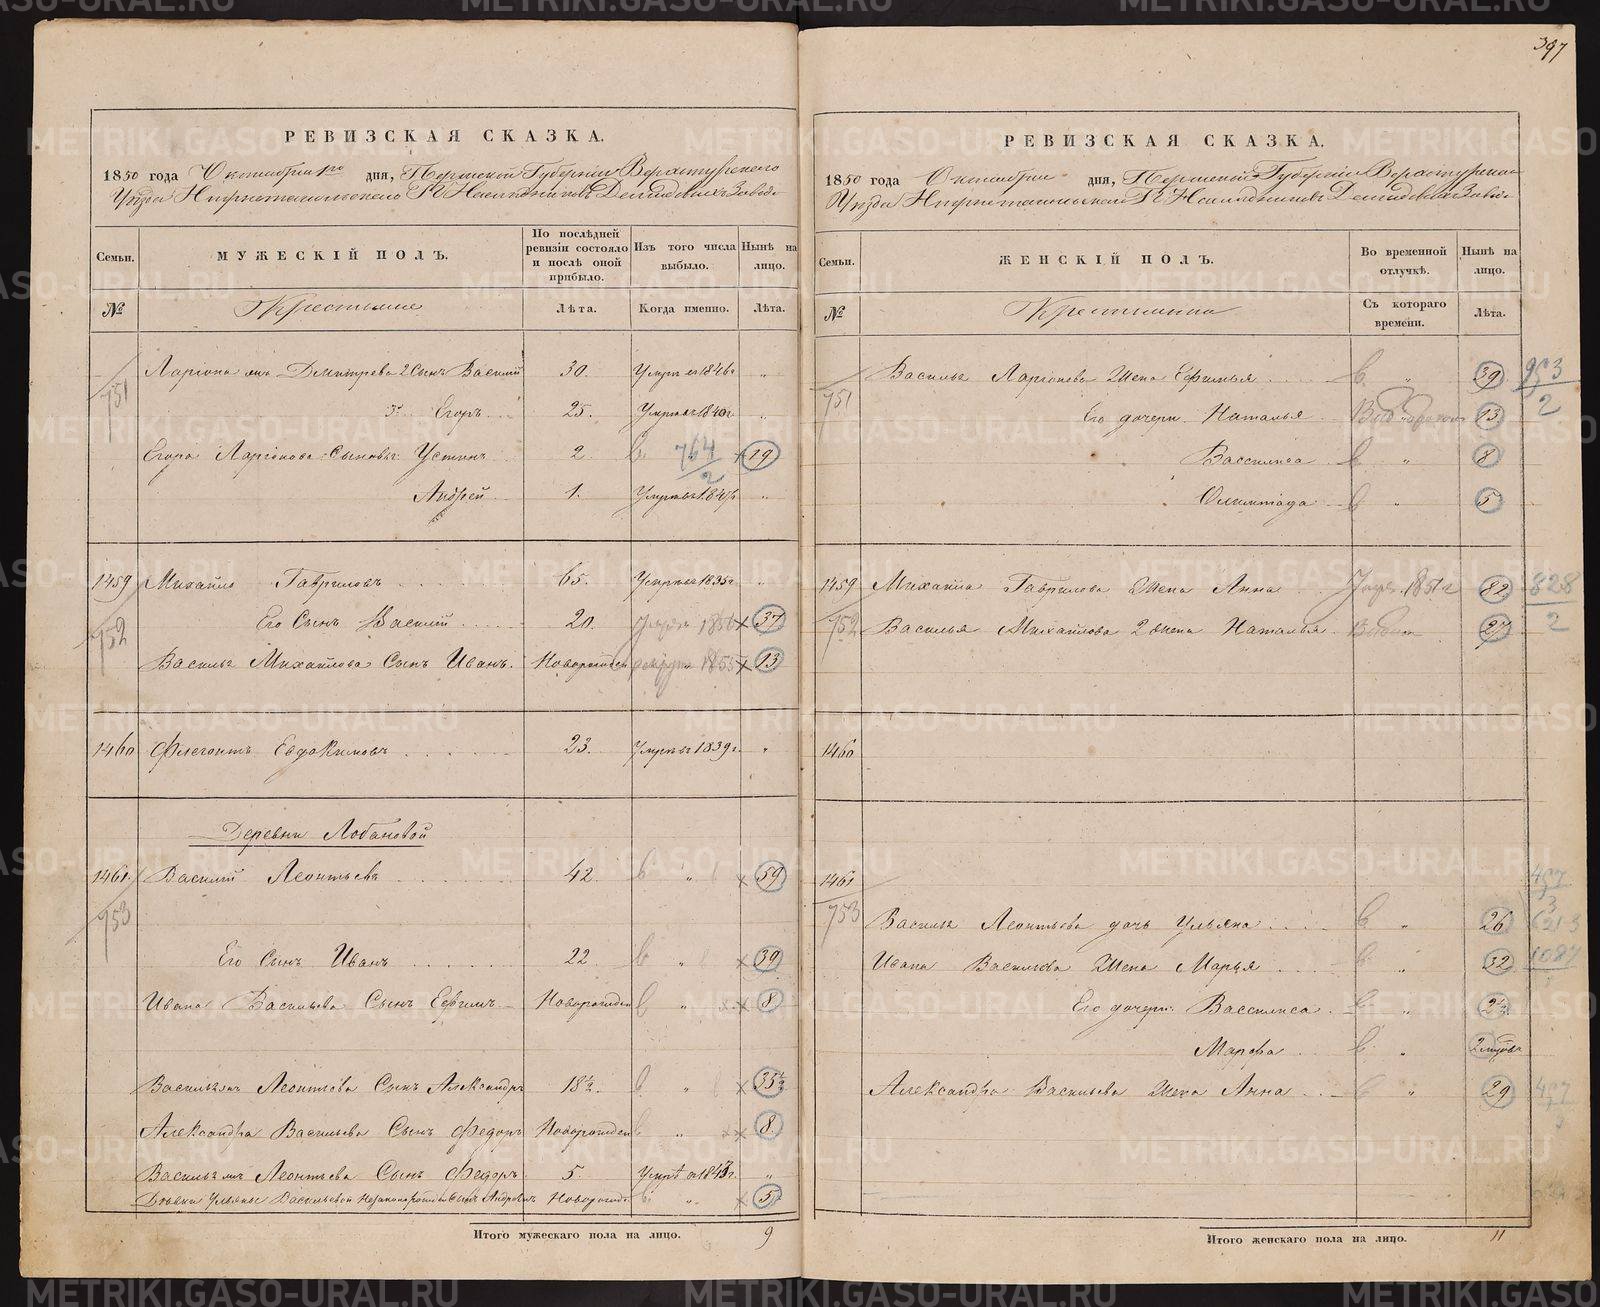 397
РЕВИЗСКАЯ СКАЗКА.
1850 года Октября дня, Пермской Губернии Верхотурскаго
Уезда Нижнетагильскаго Наследников Демидовых Завода
Семьи.
МУЖЕСКІЙ ПОЛЪ.
По послѣдней ревизіи состояло и послѣ оной прибыло.
Изъ того числа выбыло.
Нынѣ на лицо.
№
Крестьяне
Лѣта.
Когда именно.
Лѣта.
751
Ларіона Дмитрева 2 Сынъ Василій 30. Умре въ 1846 г „
3й Егоръ 25. Умре въ 1840 г. „
Егора Ларіонова Сыновья Устинъ 2. 764/2 19
Андрей 1. „
1459 Михайло Гавриловъ 65. Умре въ 1835 г „
752
Его Сынъ Василій 20. 1856 х 37
Василья Михайлова Сынъ Иванъ. Новорожден 1855 х 13
1460 Флегонтъ Евдокимовъ 23. Умре въ 1839 г. „
Деревни Лобановой
1461. Василій Леонтьевъ 42 „ х 59
753
Его Сынъ Иванъ 22 „ х 39
Ивана Васильева Сынъ Ефимъ Новорожден „ х 8
Василья Леонтьева Сынъ Александръ 18½. „ х 35½
Александра Васильева Сынъ Федоръ Новорожден „ х 8
Василья Леонтьева Сынъ Федоръ 5. „
Ульяны Васильевой Незаконорожден Сынъ Новорожд. „ х 5
Итого мужескаго пола на лицо. 9
РЕВИЗСКАЯ СКАЗКА.
1850 года Октября дня, Пермской Губерніи Верхотурскаго
Уезда Нижнетагильскаго Наследниковъ Демидовыхъ Завода
Семьи.
ЖЕНСКІЙ ПОЛЪ.
Во временной отлучкѣ.
Нынѣ на лицо.
№
Крестьянки
Съ котораго времени.
Лѣта.
751
Василья Ларіонова Жена Ефимья „ 39 953/2
Его дочери Наталья 13
Вассилиса „ 8
Олимпіада „ 5
1459 Михайла Гаврилова Жена Анна 82 828/2
752 Василья Михайлова 2 жена Наталья 27
1460
1461
753
Василья Леонтьева дочь Ульяна „ 26
Ивана Васильева Жена Марья „ 32 1087
Его дочери Вассилиса „ 2½
Марфа „
Александра Васильева Жена Анна „ 29
Итого женскаго пола на лицо. 11
METRIKI.GASO-URAL.RU